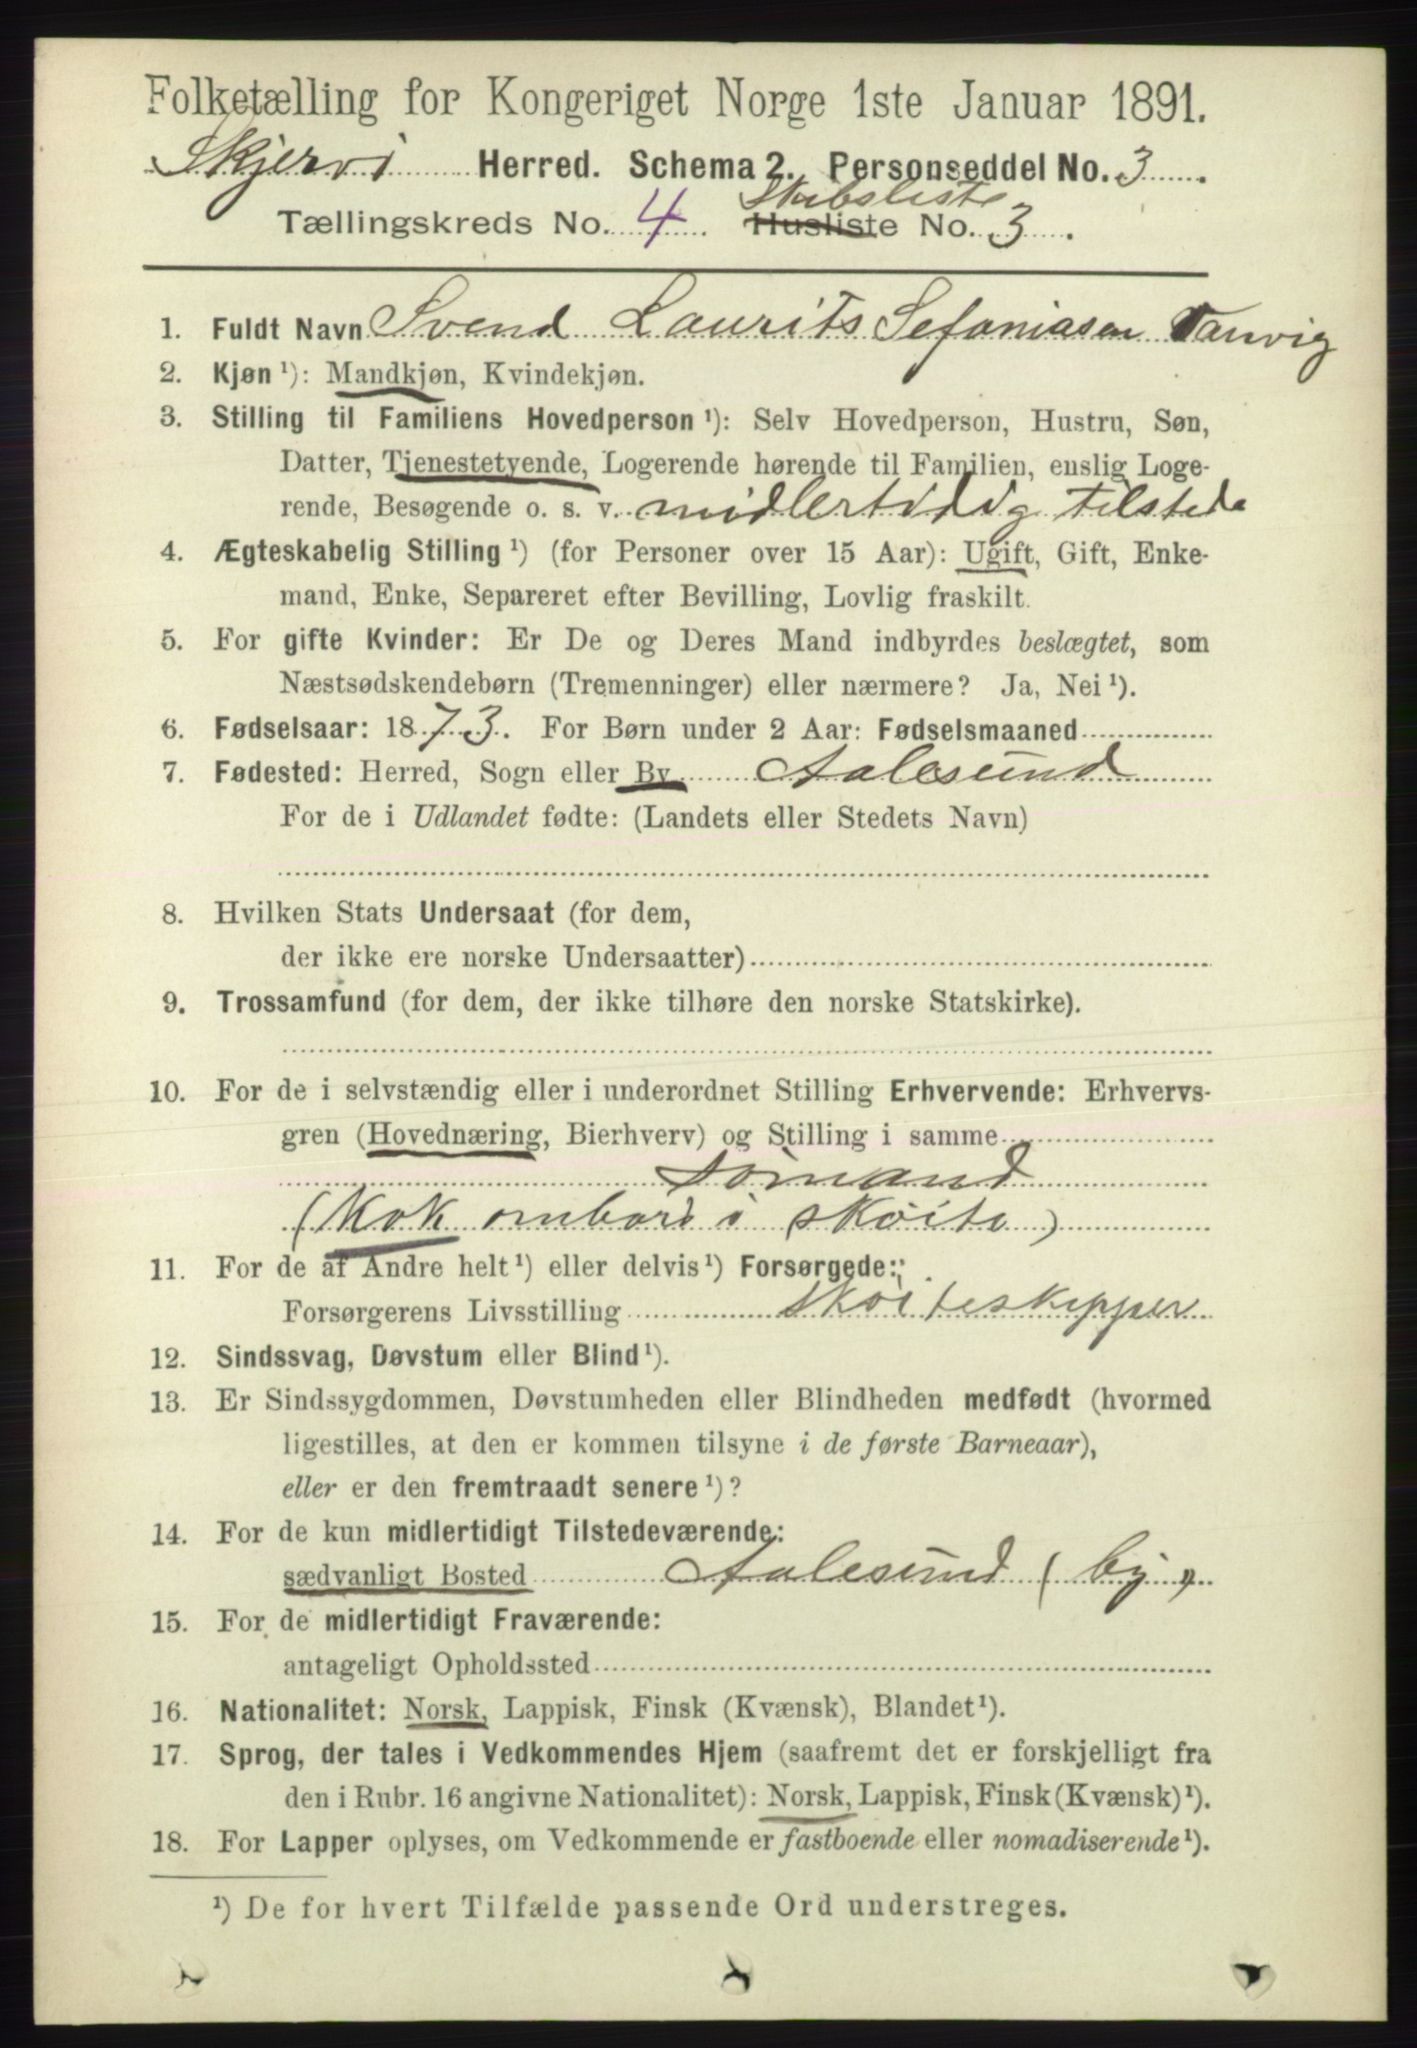 Folketælling for Kongeriget Norge 1ste Januar 1891.
Skjervö Herred. Schema 2. Personseddel No. 3
Skibsliste
Tællingskreds No. 4 Husliste No. 3
1. Fuldt Navn Svend Laurits Sefaniasen
2. Kjøn ¹): Mandkjøn, Kvindekjøn.
3. Stilling til Familiens Hovedperson ¹): Selv Hovedperson, Hustru, Søn,
Datter, Tjenestetyende, Logerende hørende til Familien, enslig Loge-
rende, Besøgende o. s. v. midlertidig tilstede
4. Ægteskabelig Stilling ¹) (for Personer over 15 Aar): Ugift, Gift, Enke-
mand, Enke, Separeret efter Bevilling, Lovlig fraskilt.
5. For gifte Kvinder: Er De og Deres Mand indbyrdes beslægtet, som
Næstsødskendebørn (Tremenninger) eller nærmere? Ja, Nei ¹).
6. Fødselsaar: 1873. For Børn under 2 Aar: Fødselsmaaned
7. Fødested: Herred, Sogn eller By Aalesund
For de i Udlandet fødte: (Landets eller Stedets Navn)
8. Hvilken Stats Undersaat (for dem,
der ikke ere norske Undersaatter)
9. Trossamfund (for dem, der ikke tilhøre den norske Statskirke).
10. For de i selvstændig eller i underordnet Stilling Erhvervende: Erhvervs-
gren (Hovednæring, Bierhverv) og Stilling i samme
sömand
(Kok ombord i sköite)
11. For de af Andre helt ¹) eller delvis ¹) Forsørgede:
Forsørgerens Livsstilling sköiteskipper
12. Sindssvag, Døvstum eller Blind ¹).
13. Er Sindssygdommen, Døvstumheden eller Blindheden medfødt (hvormed
ligestilles, at den er kommen tilsyne i de første Barneaar),
eller er den fremtraadt senere ¹)?
14. For de kun midlertidigt Tilstedeværende:
sædvanligt Bosted Aalesund (by)
15. For de midlertidigt Fraværende:
antageligt Opholdssted
16. Nationalitet: Norsk, Lappisk, Finsk (Kvænsk), Blandet ¹).
17. Sprog, der tales i Vedkommendes Hjem (saafremt det er forskjelligt fra
den i Rubr. 16 angivne Nationalitet): Norsk, Lappisk, Finsk (Kvænsk) ¹).
18. For Lapper oplyses, om Vedkommende er fastboende eller nomadiserende ¹).
¹) De for hvert Tilfælde passende Ord understreges.